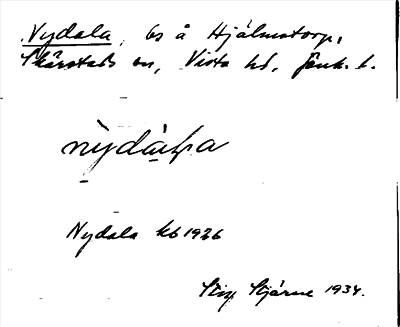 Nydala, bs å Hjälmstorp,
Skärstads sn, Vista hd, Jönk. l.
nỳdà̱ɫa
Nydala kb 1926
Stig Stjärne 1934.